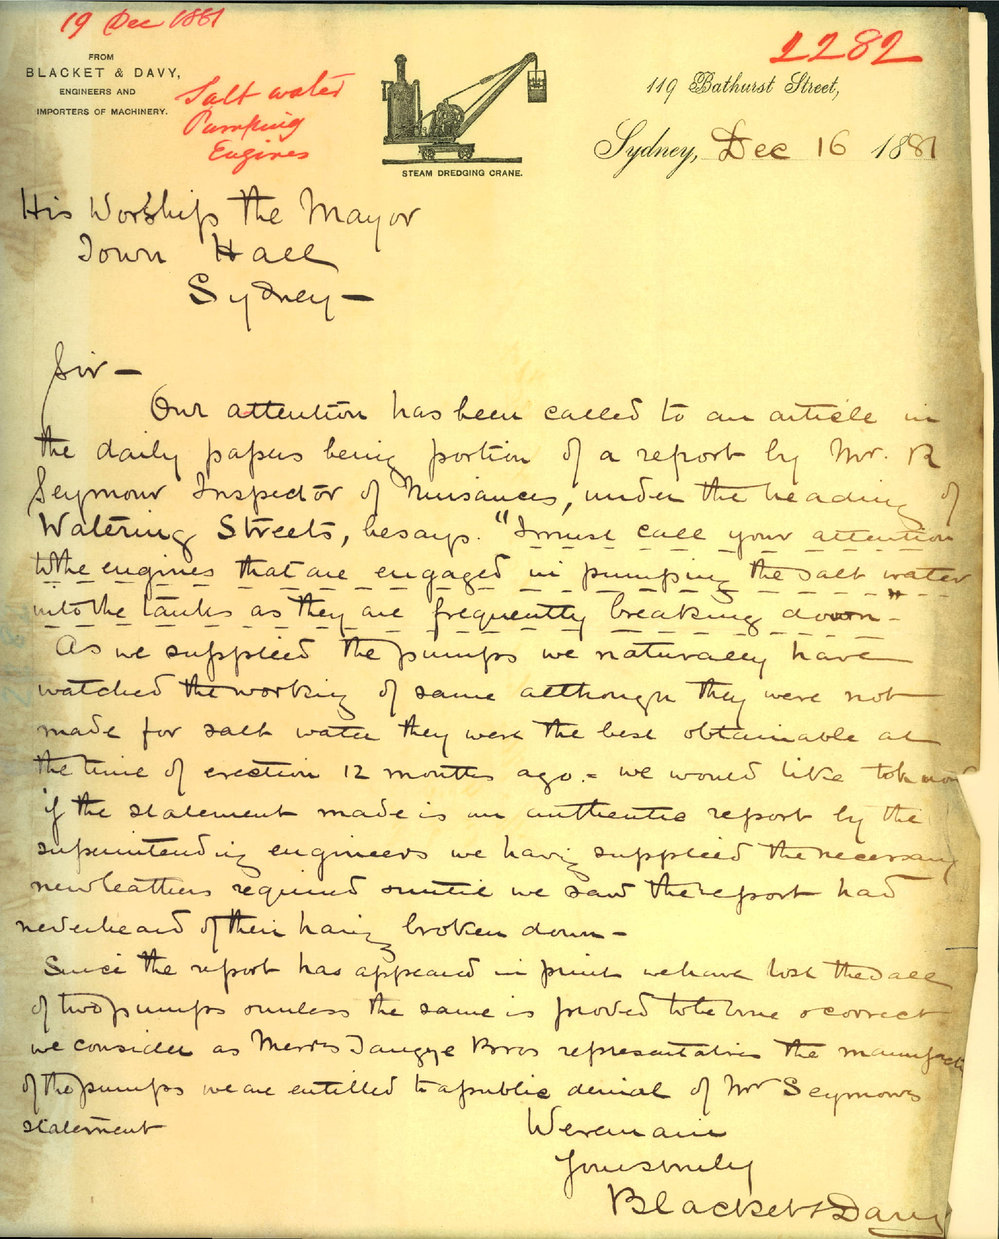 19 Dec 1881
2282
FROM
BLACKET & DAVY,
ENGINEERS AND
IMPORTERS OF MACHINERY.
Salt water
Pumping
Engines
STEAM DREDGING CRANE.
119 Bathurst Street,
Sydney, Dec 16 1881
His Worship the Mayor
Town Hall
Sydney —
Sir —
Our attention has been called to an article in
the daily papers being portion of a report by Mr. R
Seymour Inspector of Nuisances, under the heading of
Watering Streets, he says. "I must call your attention
to the engines that are engaged in pumping the salt water
into the tanks as they are frequently breaking down" -
As we supplied the pumps we naturally have
watched the working of same although they were not
made for salt water they were the best obtainable at
the time of erection 12 months ago. - we would like to know
if the statement made is an authentic report by the
superintending engineers we having supplied the necessary
new leathers required & until we saw the report had
never heard of their having broken down -
Since the report has appeared in print we have lost the sale
of two pumps & unless the same is proved to be true & correct
we consider as Messrs Tangye Bros representatives the manufact
of the pumps we are entitled to a public denial of Mr Seymours
statement
We remain
Yours truly
Blacket & Davy